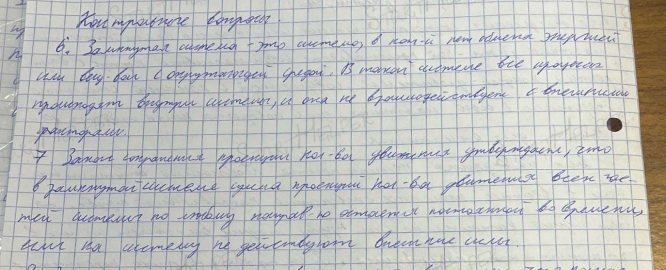 Контрольные вопросы.
6. Замкнутая система - это система, в кот-й нет обмена энергией
или вещ-вом с окружающей средой. В такой системе все процессы
происходят внутри системы, и она не взаимодействует с внешними
факторами.
7 Закон сохранения проекции кол-ва движения утверждает, что
в замкнутой системе сумма проекций кол-ва движения всех час-
тей системы по любому направ-ю остаётся постоянной во времени,
если на систему не действуют внешние силы